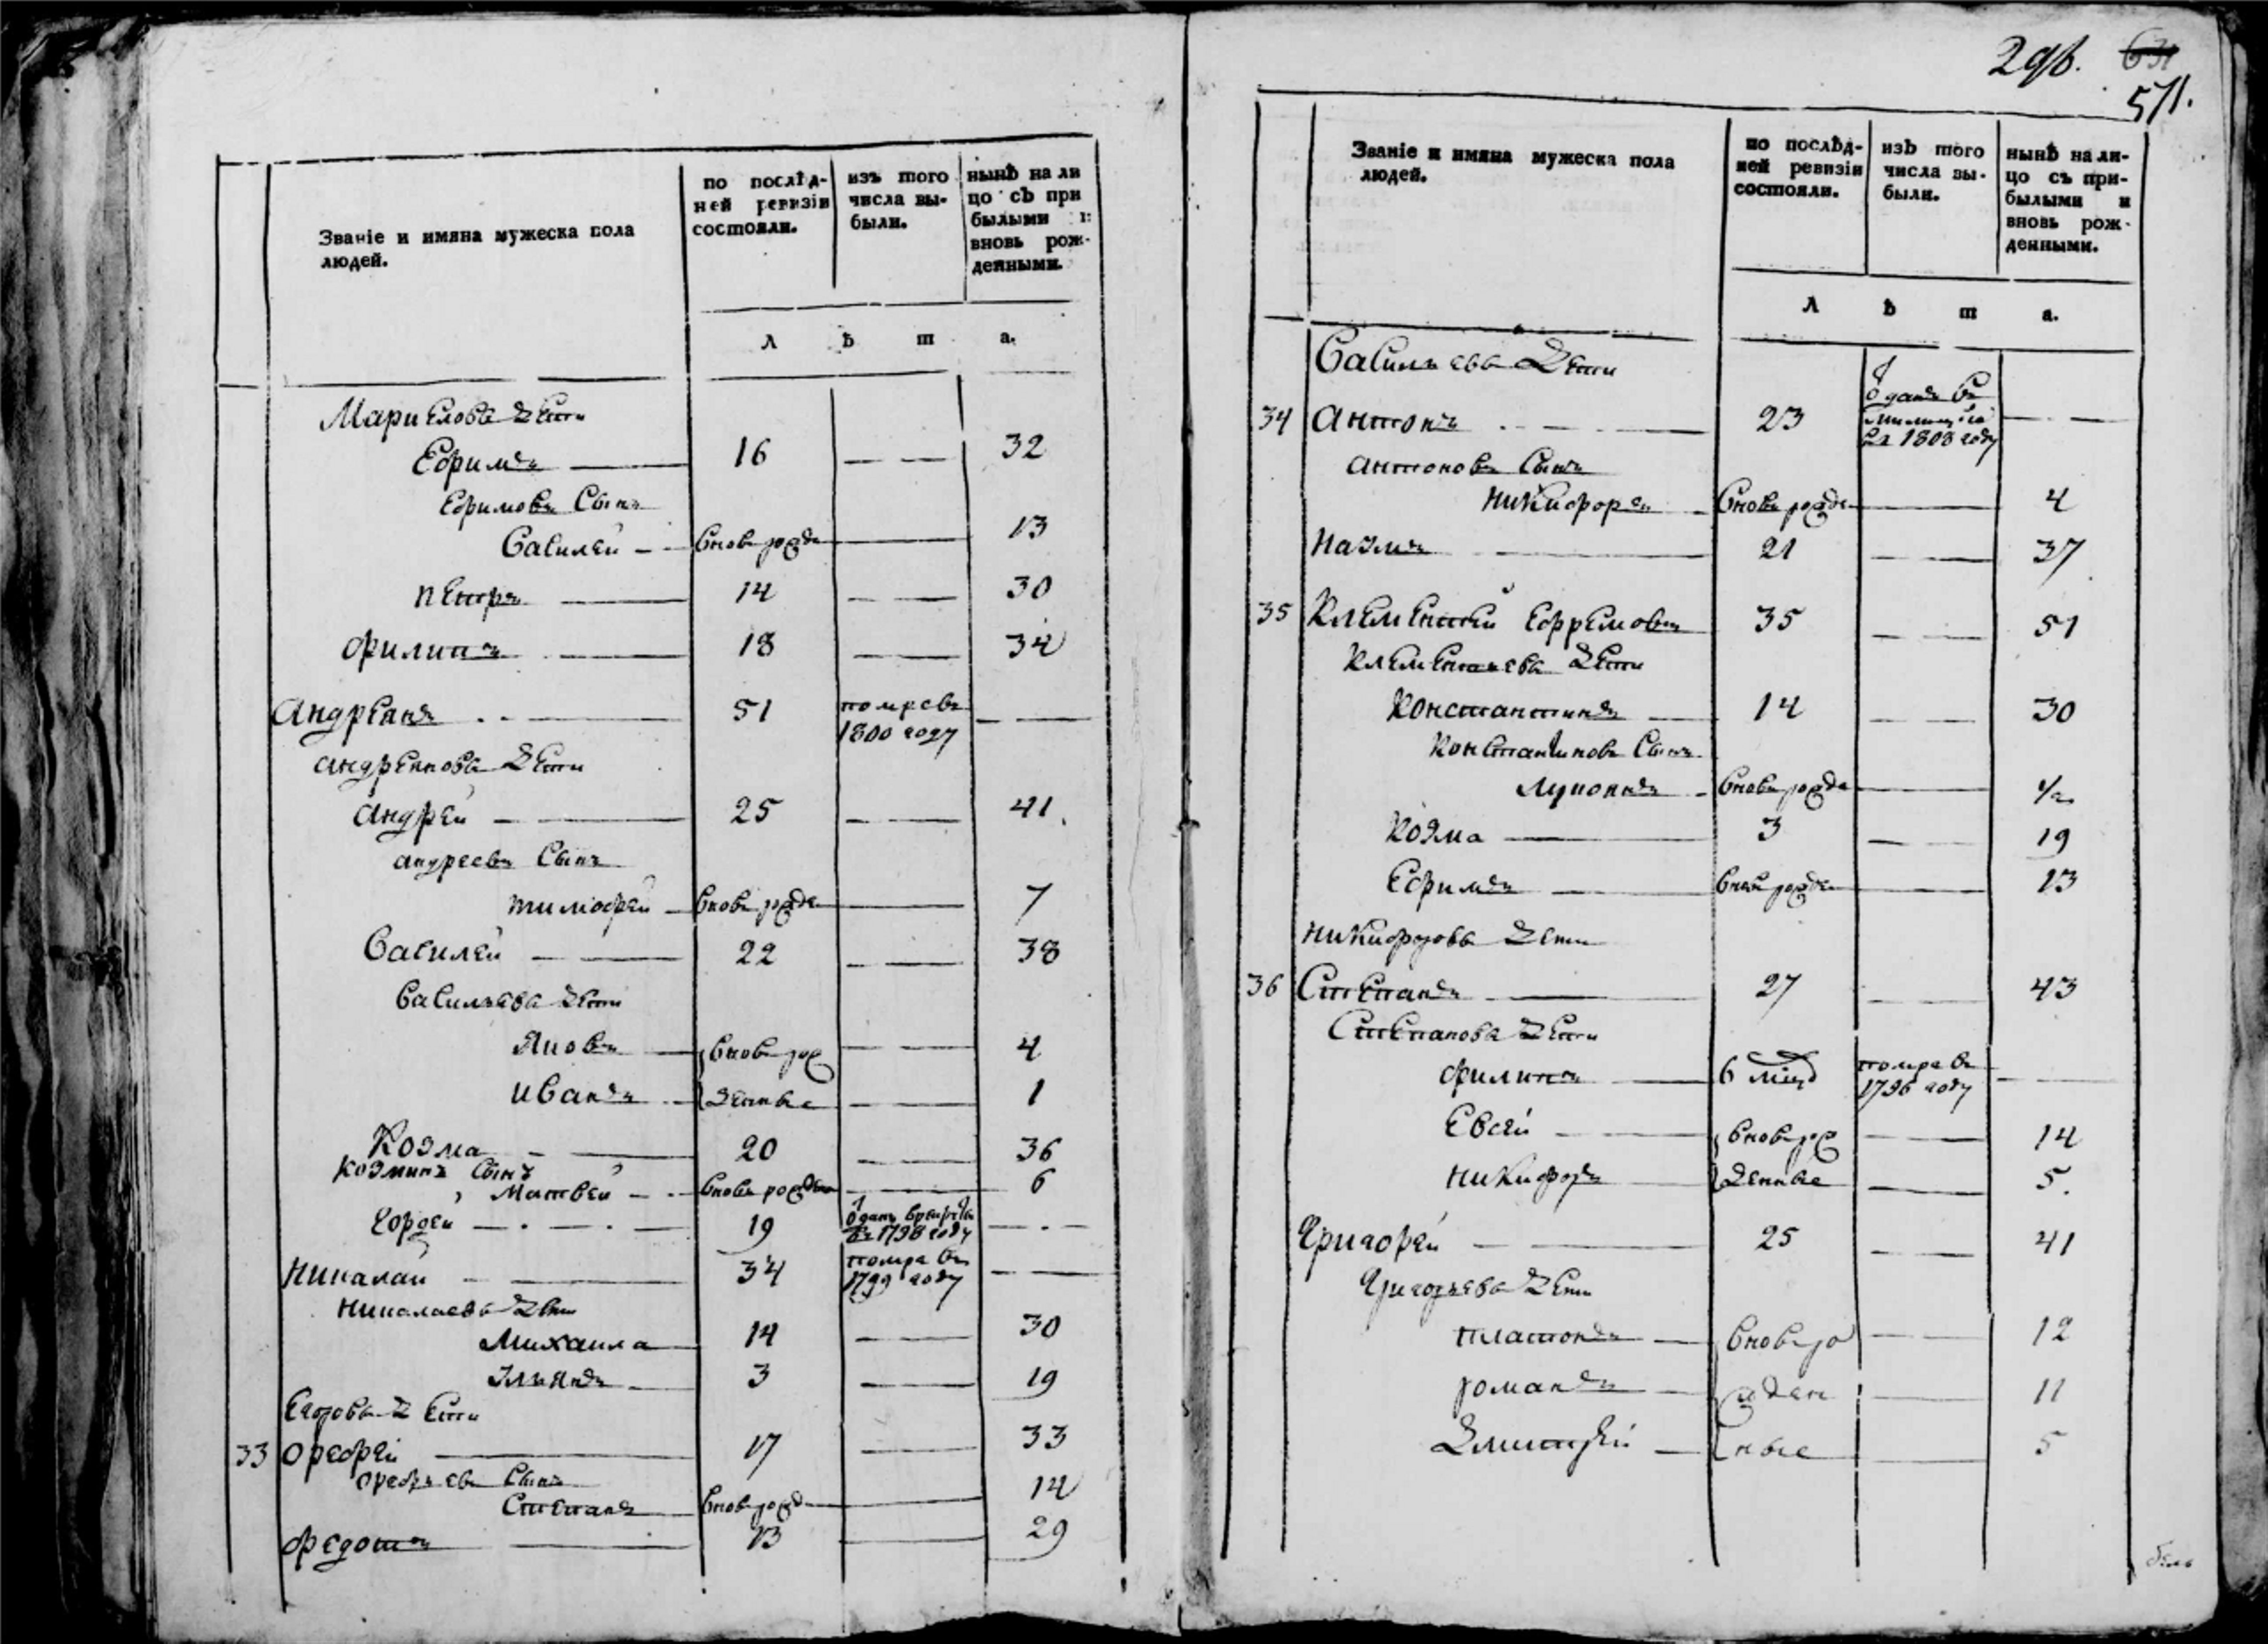 Званіе и имяна мужеска пола людей.
по послѣдней ревизіи состояли.
изъ того числа выбыли.
нынѣ на лицо съ прибылыми и вновь рожденными.
л ѣ т а.
дети
Ефимъ 16 32
Ефимовъ Сынъ
Василей вновь рожде 13
Петръ 14 30
Филипъ 18 34
Андреянъ 51 помре въ 1800 году
Андреянова дети
Андрей 25 41
андреевъ Сынъ
тимофей вновь рожде 7
Василей 22 38
Васильева дети
Яковъ вновь рож 4
Иванъ денные 1
Козма 20 36
Козминъ Сынъ
Матвей вновь рожде 6
Гордей 19 отданъ в рекруты въ 1798 году
Николай 34 помре въ 1799 году
Николаевы дети
Михаила 14 30
3 19
дети
33 17 33
Сынъ
Степанъ вновь рожде 14
Федотъ 13 29
298. 631
571.
Званіе и имяна мужеска пола людей.
по послѣдней ревизіи состояли.
изъ того числа выбыли.
нынѣ на лицо съ прибылыми и вновь рожденными.
л ѣ т а.
Васильева дети
34 Антонъ 23 отданъ въ милицию въ 1808 году
антоновъ Сынъ
Никифоръ вновь рожде 4
Наумъ 21 37
35 Клементей Ефремовъ 35 51
Клементьева дети
Константинъ 14 30
Константиновъ Сынъ
вновь рожде
Козма 3 19
Ефимъ вновь рожде 13
Никифорова дети
36 Степанъ 27 43
Степанова дети
Филипъ 6 меся помре въ 1796 году
Евсей вновь рож 14
Никифоръ денные 5.
Григорей 25 41
Григорьева дети
платонъ вновь ро 12
романъ жден 11
Дмитрей ные 5